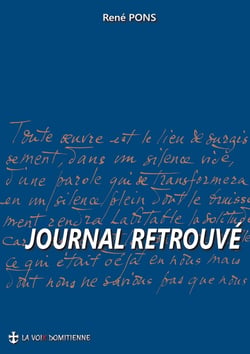 René PONS
Toute œuvre est le lieu de surgis
sement, dans un silence vide,
d'une parole qui se transformera
en un silence plein dont le bruisse
ment rendra habitable la solitude
Car
JOURNAL RETROUVÉ
ce qui était déjà en nous mais
dont nous ne savions pas que nous
LA VOIX DOMITIENNE